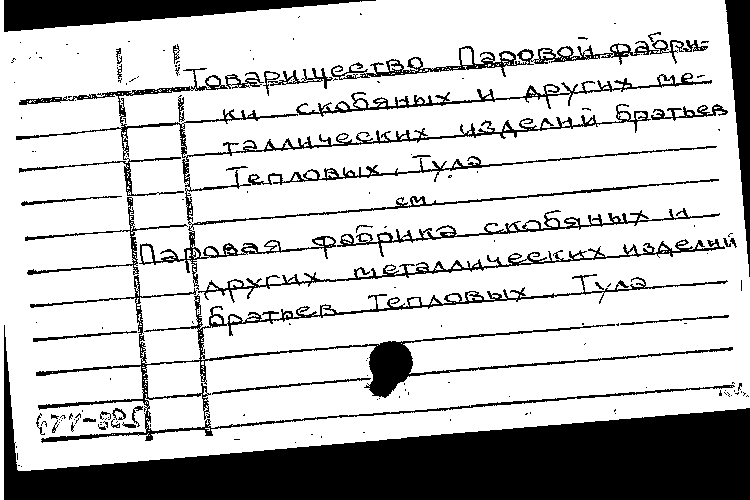 Товарищество Паровой фабри-
ки скобяных и других ме-
таллических изделий братьев
Тепловых. Тула
см.
Паровая фабрика скобяных и
других металлических изделий
братьев Тепловых. Тула